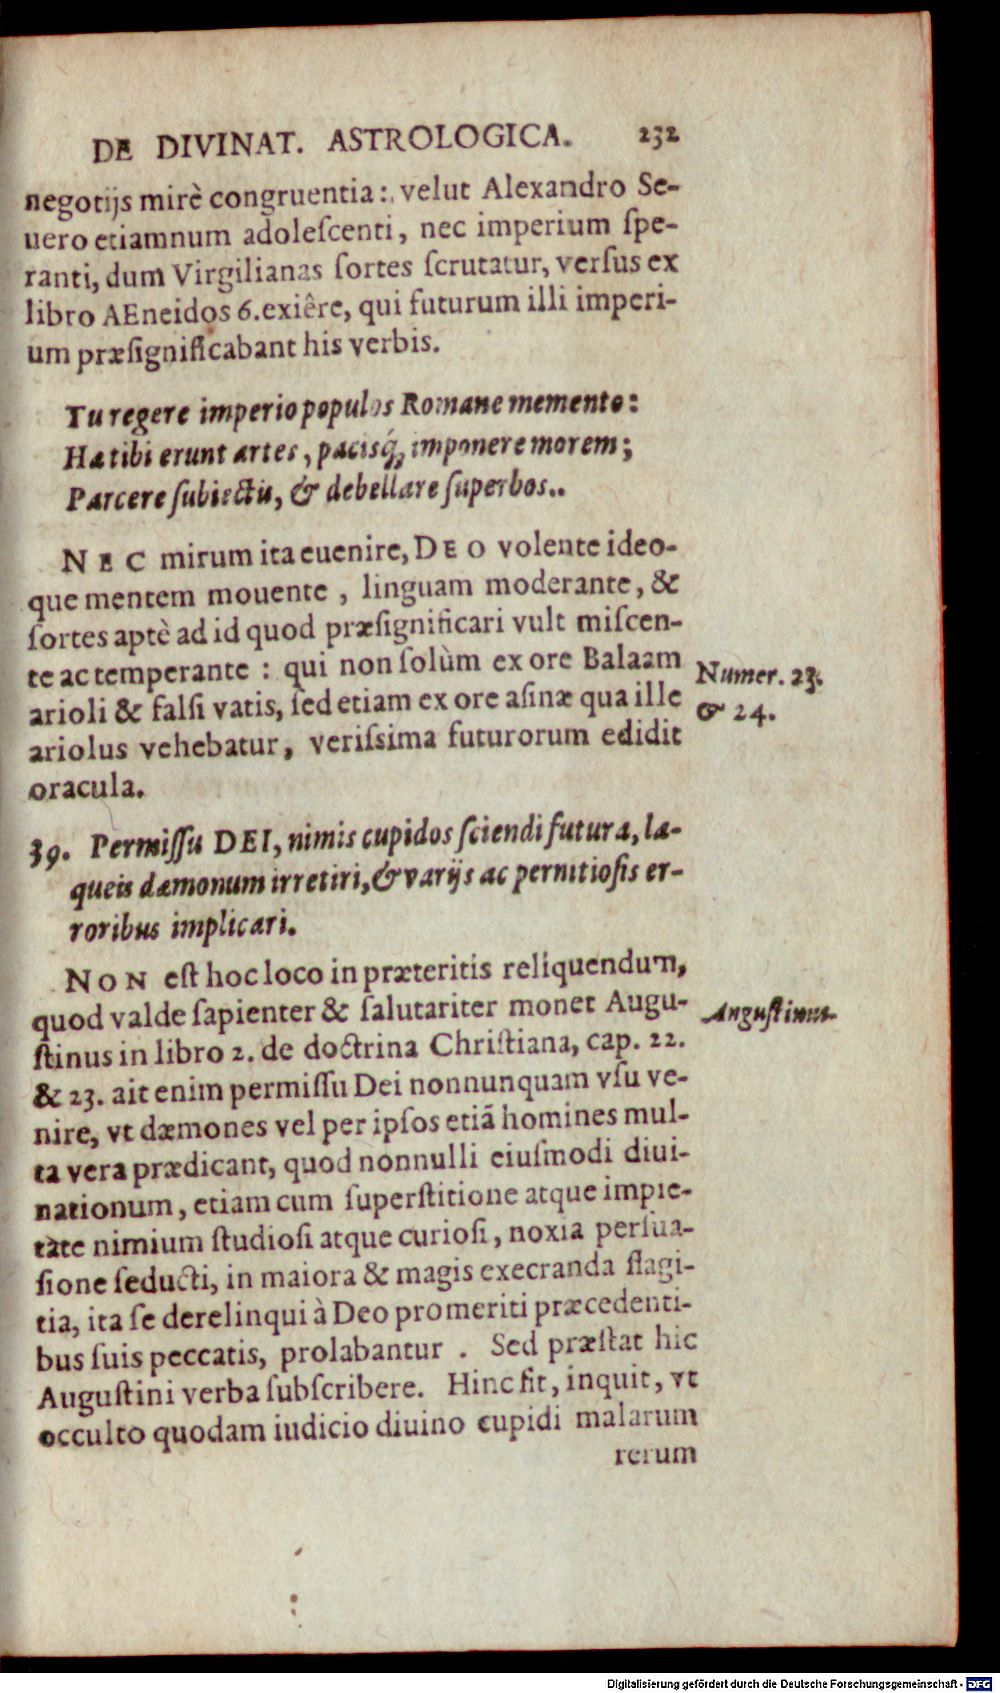 DE DIVINAT. ASTROLOGICA. 232
negotijs mirè congruentia: velut Alexandro Se-
uero etiamnum adoleſcenti, nec imperium ſpe-
ranti, dum Virgilianas ſortes ſcrutatur, verſus ex
libro AEneidos 6. exiêre, qui futurum illi imperi-
um præſignificabant his verbis.
Tu regere imperio populos Romane memento:
Hæ tibi erunt artes, pacisq́, imponere morem;
Parcere ſubiectis, & debellare ſuperbos..
NEC mirum ita euenire, DEO volente ideo-
que mentem mouente, linguam moderante, &
ſortes aptè ad id quod præſignificari vult miſcen-
te ac temperante: qui non ſolùm ex ore Balaam
Numer. 23.
arioli & falſi vatis, ſed etiam ex ore aſinæ qua ille
& 24.
ariolus vehebatur, veriſsima futurorum edidit
oracula.
39. Permiſſu DEI, nimis cupidos ſciendi futura, la-
queis dæmonum irretiri, & varijs ac pernitioſis er-
roribus implicari.
NON eſt hoc loco in præteritis reliquendum,
quod valde ſapienter & ſalutariter monet Augu-
Auguſtinus.
ſtinus in libro 2. de doctrina Chriſtiana, cap. 22.
& 23. ait enim permiſſu Dei nonnunquam vſu ve-
nire, vt dæmones vel per ipſos etiã homines mul-
ta vera prædicant, quod nonnulli eiuſmodi diui-
nationum, etiam cum ſuperſtitione atque impie-
tàte nimium ſtudioſi atque curioſi, noxia perſua-
ſione ſeducti, in maiora & magis execranda flagi-
tia, ita ſe derelinqui à Deo promeriti præcedenti-
bus ſuis peccatis, prolabantur. Sed præſtat hic
Auguſtini verba ſubſcribere. Hinc fit, inquit, vt
occulto quodam iudicio diuino cupidi malarum
rerum
Digitalisierung gefördert durch die Deutsche Forschungsgemeinschaft - DFG